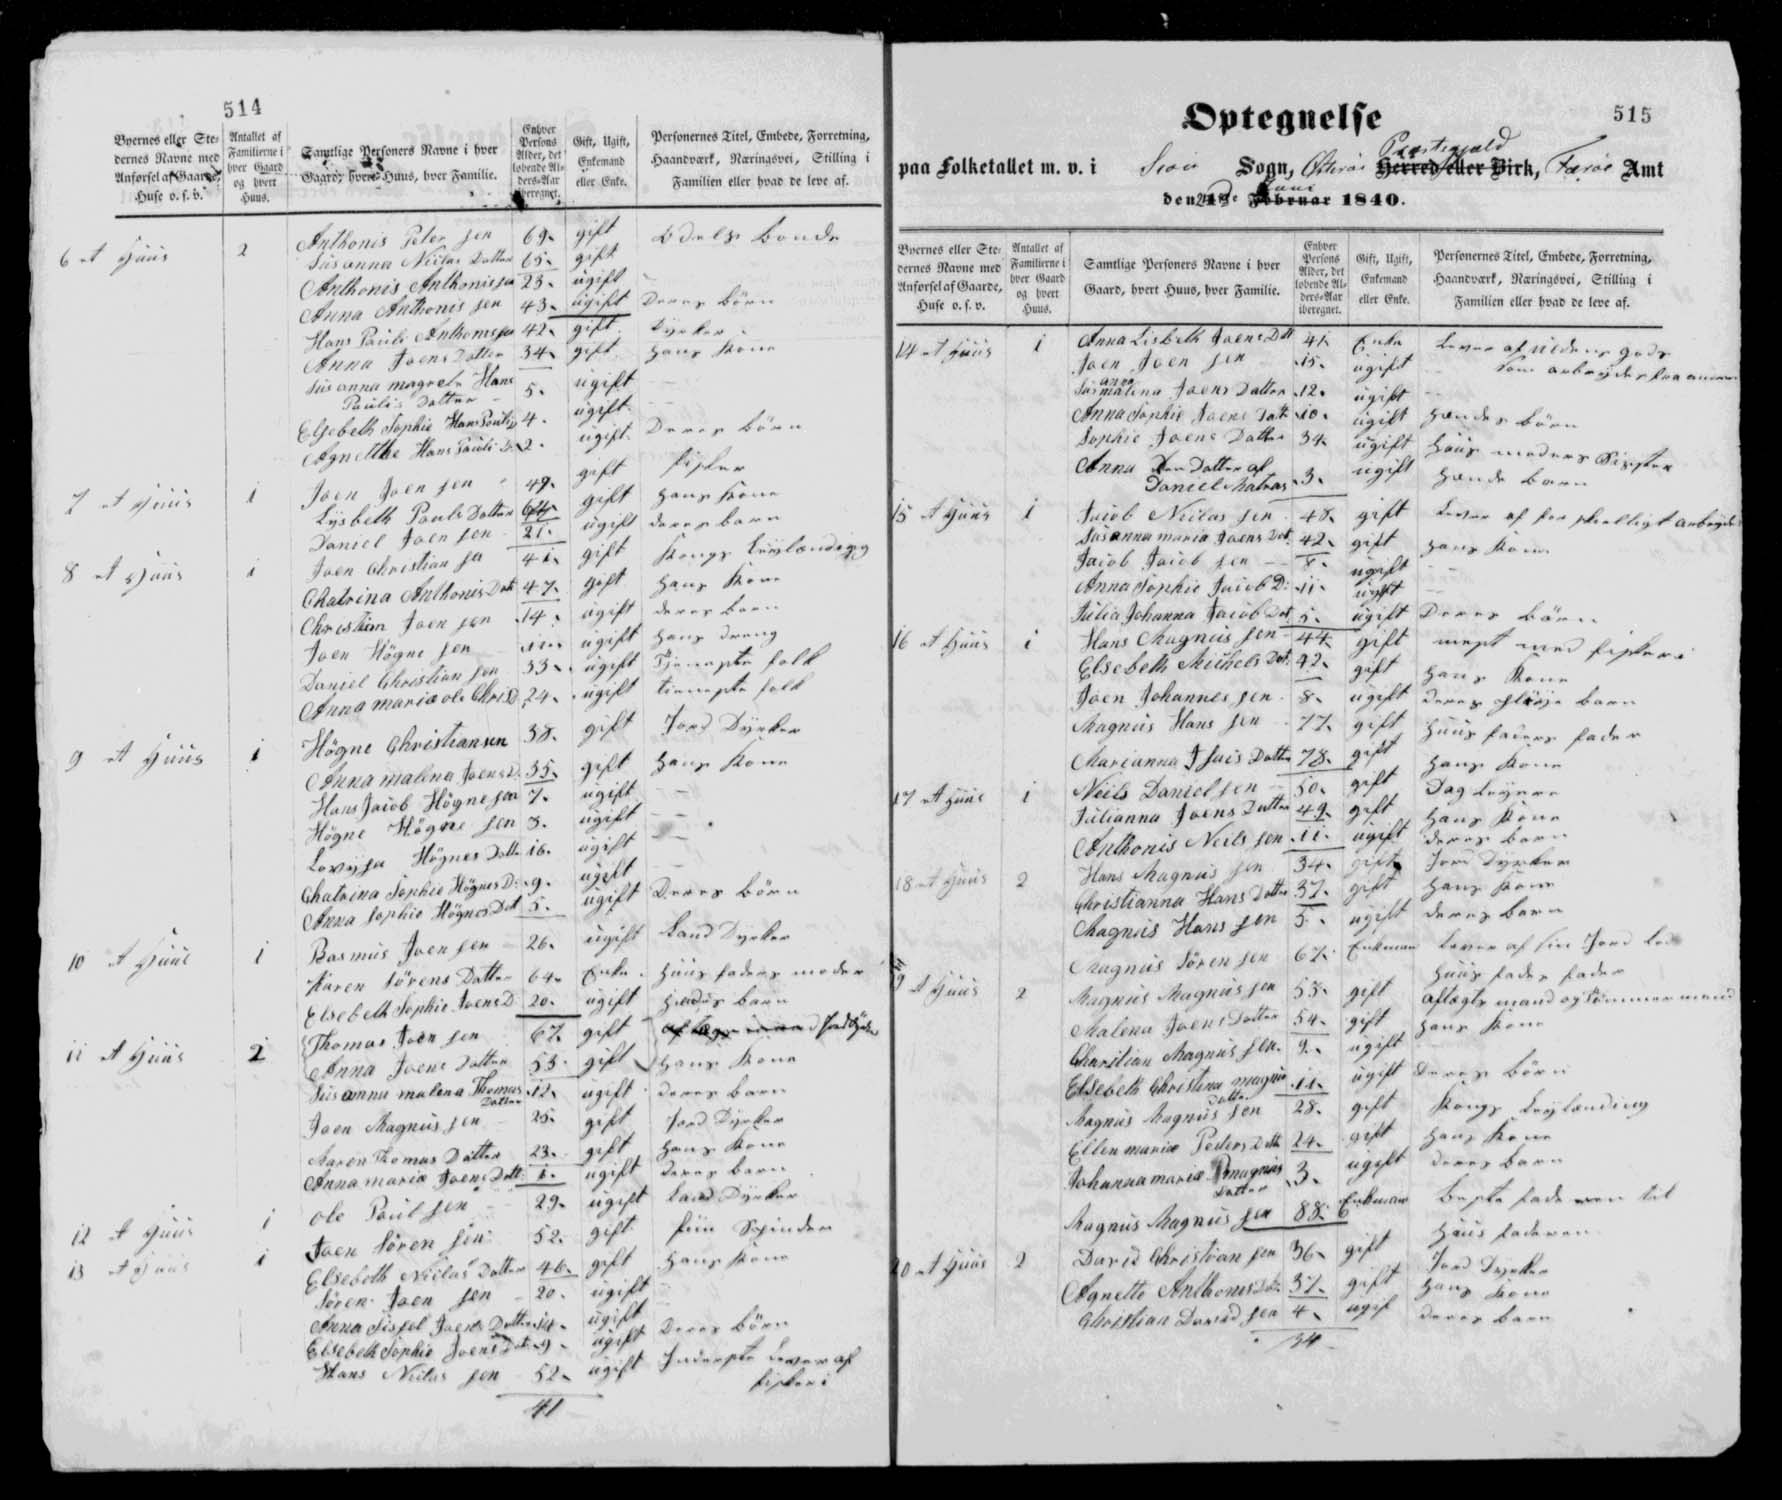 514
Byernes eller Ste-
dernes Navne med
Anførsel af Gaarde,
Huse o. s. v.
Antallet af
Familierne i
hver Gaard
og hvert
Huus.
Samtlige Personers Navne i hver
Gaard, hvert Huus, hver Familie.
Enhver
Persons
Alder, det
løbende Al-
ders-Aar
iberegnet.
Gift, Ugift,
Enkemand
eller Enke.
Personernes Titel, Embede, Forretning,
Haandværk, Næringsvei, Stilling i
Familien eller hvad de leve af.
6 et Huus 2 Anthonis Peter sen 69. gift Odels bonde
Susanna Niclas Datter 65. gift
Anthonis Anthonissen 23. ugift
Anna Anthonis sen 43. ugift Deres Börn
Hans Pauli Anthonissen 42. gift
Anna Joens Datter 34. gift hans Kone
Susanna magreta Hans
Paulis Datter 5. ugift
Elsebeth Sophie Hans Paulis 4. ugift
Agnethe Hans Pauli D. 2. ugift Deres Börn
7 et Huus 1 Joen Joen sen 49. gift fisker
Lysbeth Pauls Datter 64. gift hans Kone
Daniel Joen sen 21. ugift deres barn
8 et Huus 1 Joen Christian sen 41. gift Kongs
Chatrina Anthonis Dat 47. gift hans Kone
Christian Joen sen 14. ugift deres barn
Joen Högne sen ugift hans dreng
Daniel Christian sen 33. ugift Tieneste folk
Anna maria ole Chris D. 24. ugift tieneste folk
9 et Huus 1 Högne Christiansen 38. gift Jord Dyrker
Anna malena Joens D. 35. gift hans Kone
Hans Jacob Högne sen 7. ugift
Högne Högne sen 3. ugift
Lovisa Högnes Datter 16. ugift
Chatrina Sophie Högnes D. 9. ugift
Anna Sophie Högnes Dat 5. ugift Deres Börn
10 et Huus 1 Rasmus Joen sen 26. ugift Land Dyrker
Karen Sörens Datter 64. Enke huus faders moder
Elsebeth Sophie Joens D 20. ugift hendes barn
11 et Huus 2 Thomas Joen sen 67. gift
Anna Joens Datter 53. gift hans Kone
Susanna malena Thomas
Datter 12. ugift deres barn
Joen Magnus sen 25. gift Jord Dyrker
Karen Thomas Datter 23. gift hans Kone
Anna maria Joens Datt 1. ugift deres barn
12 et Huus 1 Ole Paul sen 29. ugift Land Dyrker
13 et Huus 1 Joen Sören sen 52. gift
Elsebeth Niclas Datter 46. gift hans Kone
Sören Joen sen 20. ugift
Anna Sissel Joens Datter 14. ugift
Elsebeth Sophie Joens Dat 9. ugift Deres Börn
Hans Niclas sen 52. ugift Inderste Lever af
fiskeri
41
Optegnelse
515
paa Folketallet m. v. i Sogn, Österöe Præstegjæld Herred eller Birk, Færöe Amt
den Juni Februar 1840.
Byernes eller Ste-
dernes Navne med
Anførsel af Gaarde,
Huse o. s. v.
Antallet af
Familierne i
hver Gaard
og hvert
Huus.
Samtlige Personers Navne i hver
Gaard, hvert Huus, hver Familie.
Enhver
Persons
Alder, det
løbende Al-
ders-Aar
iberegnet.
Gift, Ugift,
Enkemand
eller Enke.
Personernes Titel, Embede, Forretning,
Haandværk, Næringsvei, Stilling i
Familien eller hvad de leve af.
14 et Huus 1 Anna Lisbeth Joens Datt 41. Enke Lever af
Joen Joen sen 15. ugift som arbeydes
Susanna malena Joens Datter 12. ugift
Anna Sophie Joens Datt 10. ugift hendes Börn
Sophie Joens Datter 34. ugift Huus moders Sister
Anna Datter af
Daniel 3. ugift hends barn
15 et Huus 1 Jacob Niclas sen 48. gift Lever af forskielligt arbeyde
Susanna maria Joens Dat. 42. gift hans Kone
Jacob Jacob sen 8. ugift
Anna Sophie Jacob D. 11. ugift
Julia Johanna Jacob Dat 5. ugift Deres Börn
16 et Huus 1 Hans Magnus sen 44. gift mest med fiskeri
Elsebeth Michels Dat. 42. gift hans Kone
Joen Johannes sen 8. ugift deres barn
Magnus Hans sen 77. gift Huus faders fader
Marianna Datter 78. gift hans Kone
17 et Huus 1 Neils Daniel sen 50. gift Dag Leyere
Julianna Joens Datter 49. gift hans Kone
Anthonis Neils sen 11. ugift deres barn
18 et Huus 2 Hans Magnus sen 34. gift Jord Dyrker
Christianna Hans Datter 37. gift hans Kone
Magnus Hans sen 5. ugift deres barn
Magnus Sören sen 67. Enkman Lever af sin Jord
Huus fader fader
19 et Huus 2 Magnus Magnus sen 55. gift aflægts mand og Tömmer mand
Malena Joens Datter 54. gift hans Kone
Christian Magnus sen 9. ugift
Elsebeth Christina magnus
Datter 11. ugift Deres Börn
Magnus Magnus sen 28. gift Kongs
Ellen maria Peders Datt 24. gift hans Kone
Johanna maria magnus
Datter 3. ugift deres barn
Magnus Magnus sen 88. Enkman beste faderen til
Huus faderen
20 et Huus 2 David Christian sen 36. gift Jord Dyrker
Agnette Anthonis Dat. 37. gift hans Kone
Christian David sen 4. ugift deres barn
34